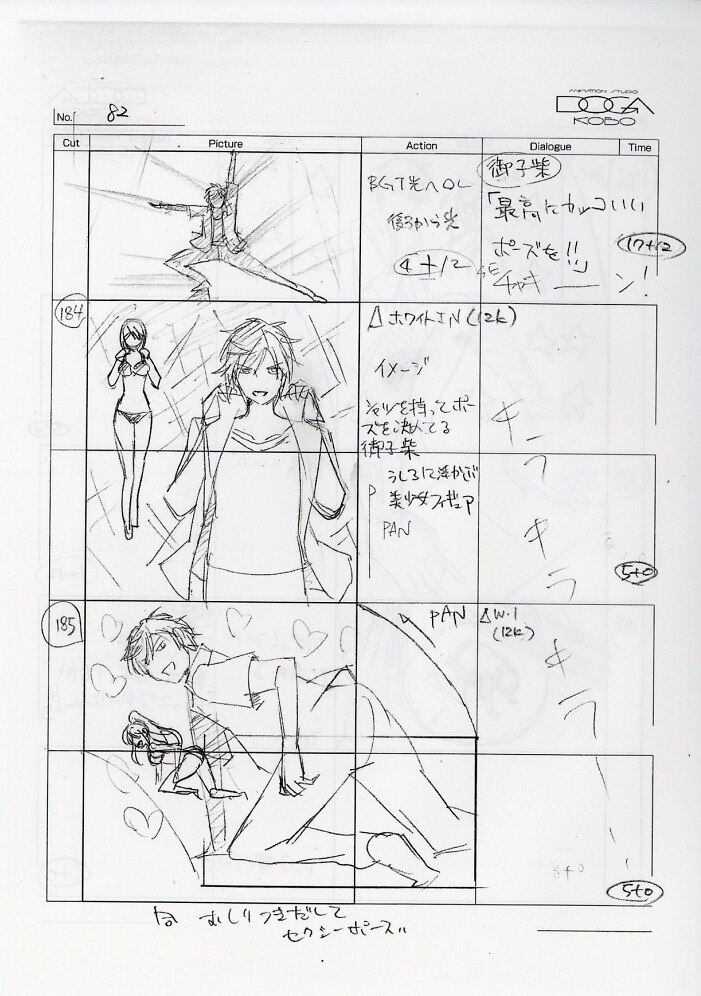 No. 82
ANIMATION STUDIO
DOGA
KOBO
Cut Picture Action Dialogue Time
BG T光へOL
後ろから光
4+12
御子柴
「最高にカッコいい
ポーズを!!」
SE
ン!
17+12
184
ホワイトIN(12k)
イメージ
シャツを持ってポー
ズを決めてる
御子柴
うしろに浮かぶ
美少女フィギュア
PAN
キ
ラ
キ
ラ
5+0
185
PAN
W.I
(12k)
キ
ラ
5+0
おしりつきだして
セクシーポーズ